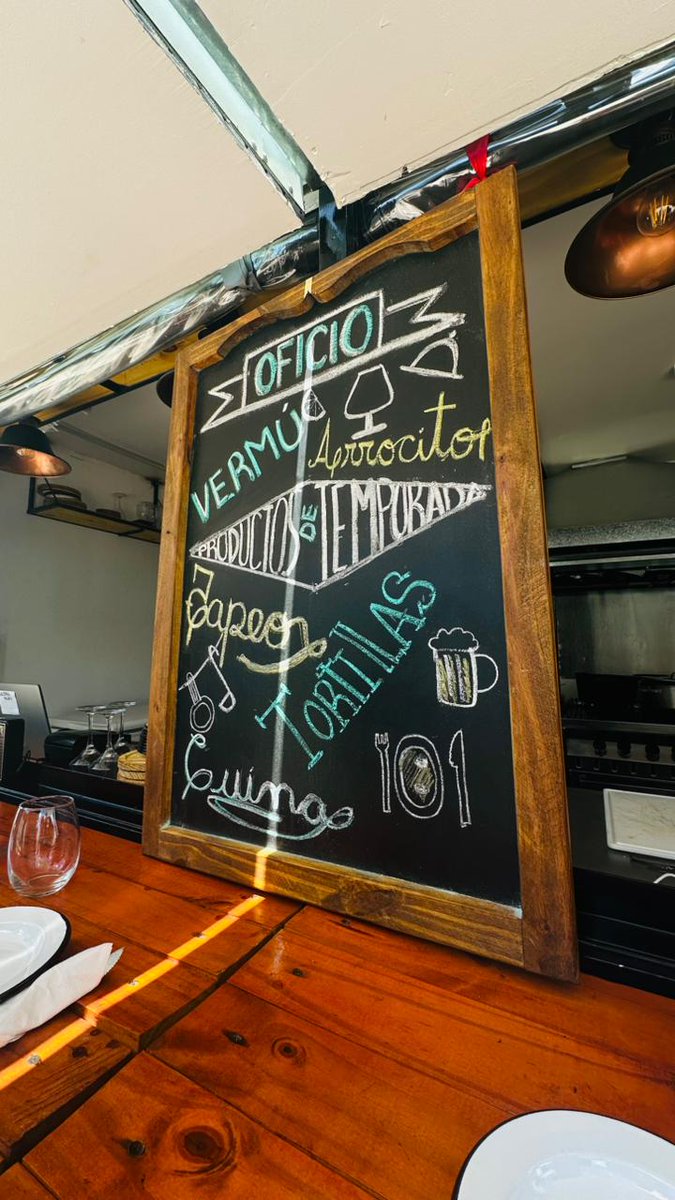 OFICIO
VERMÚ
Arrocitos
PRODUCTOS DE TEMPORADA
Tapeo
TORTILLAS
Cuina